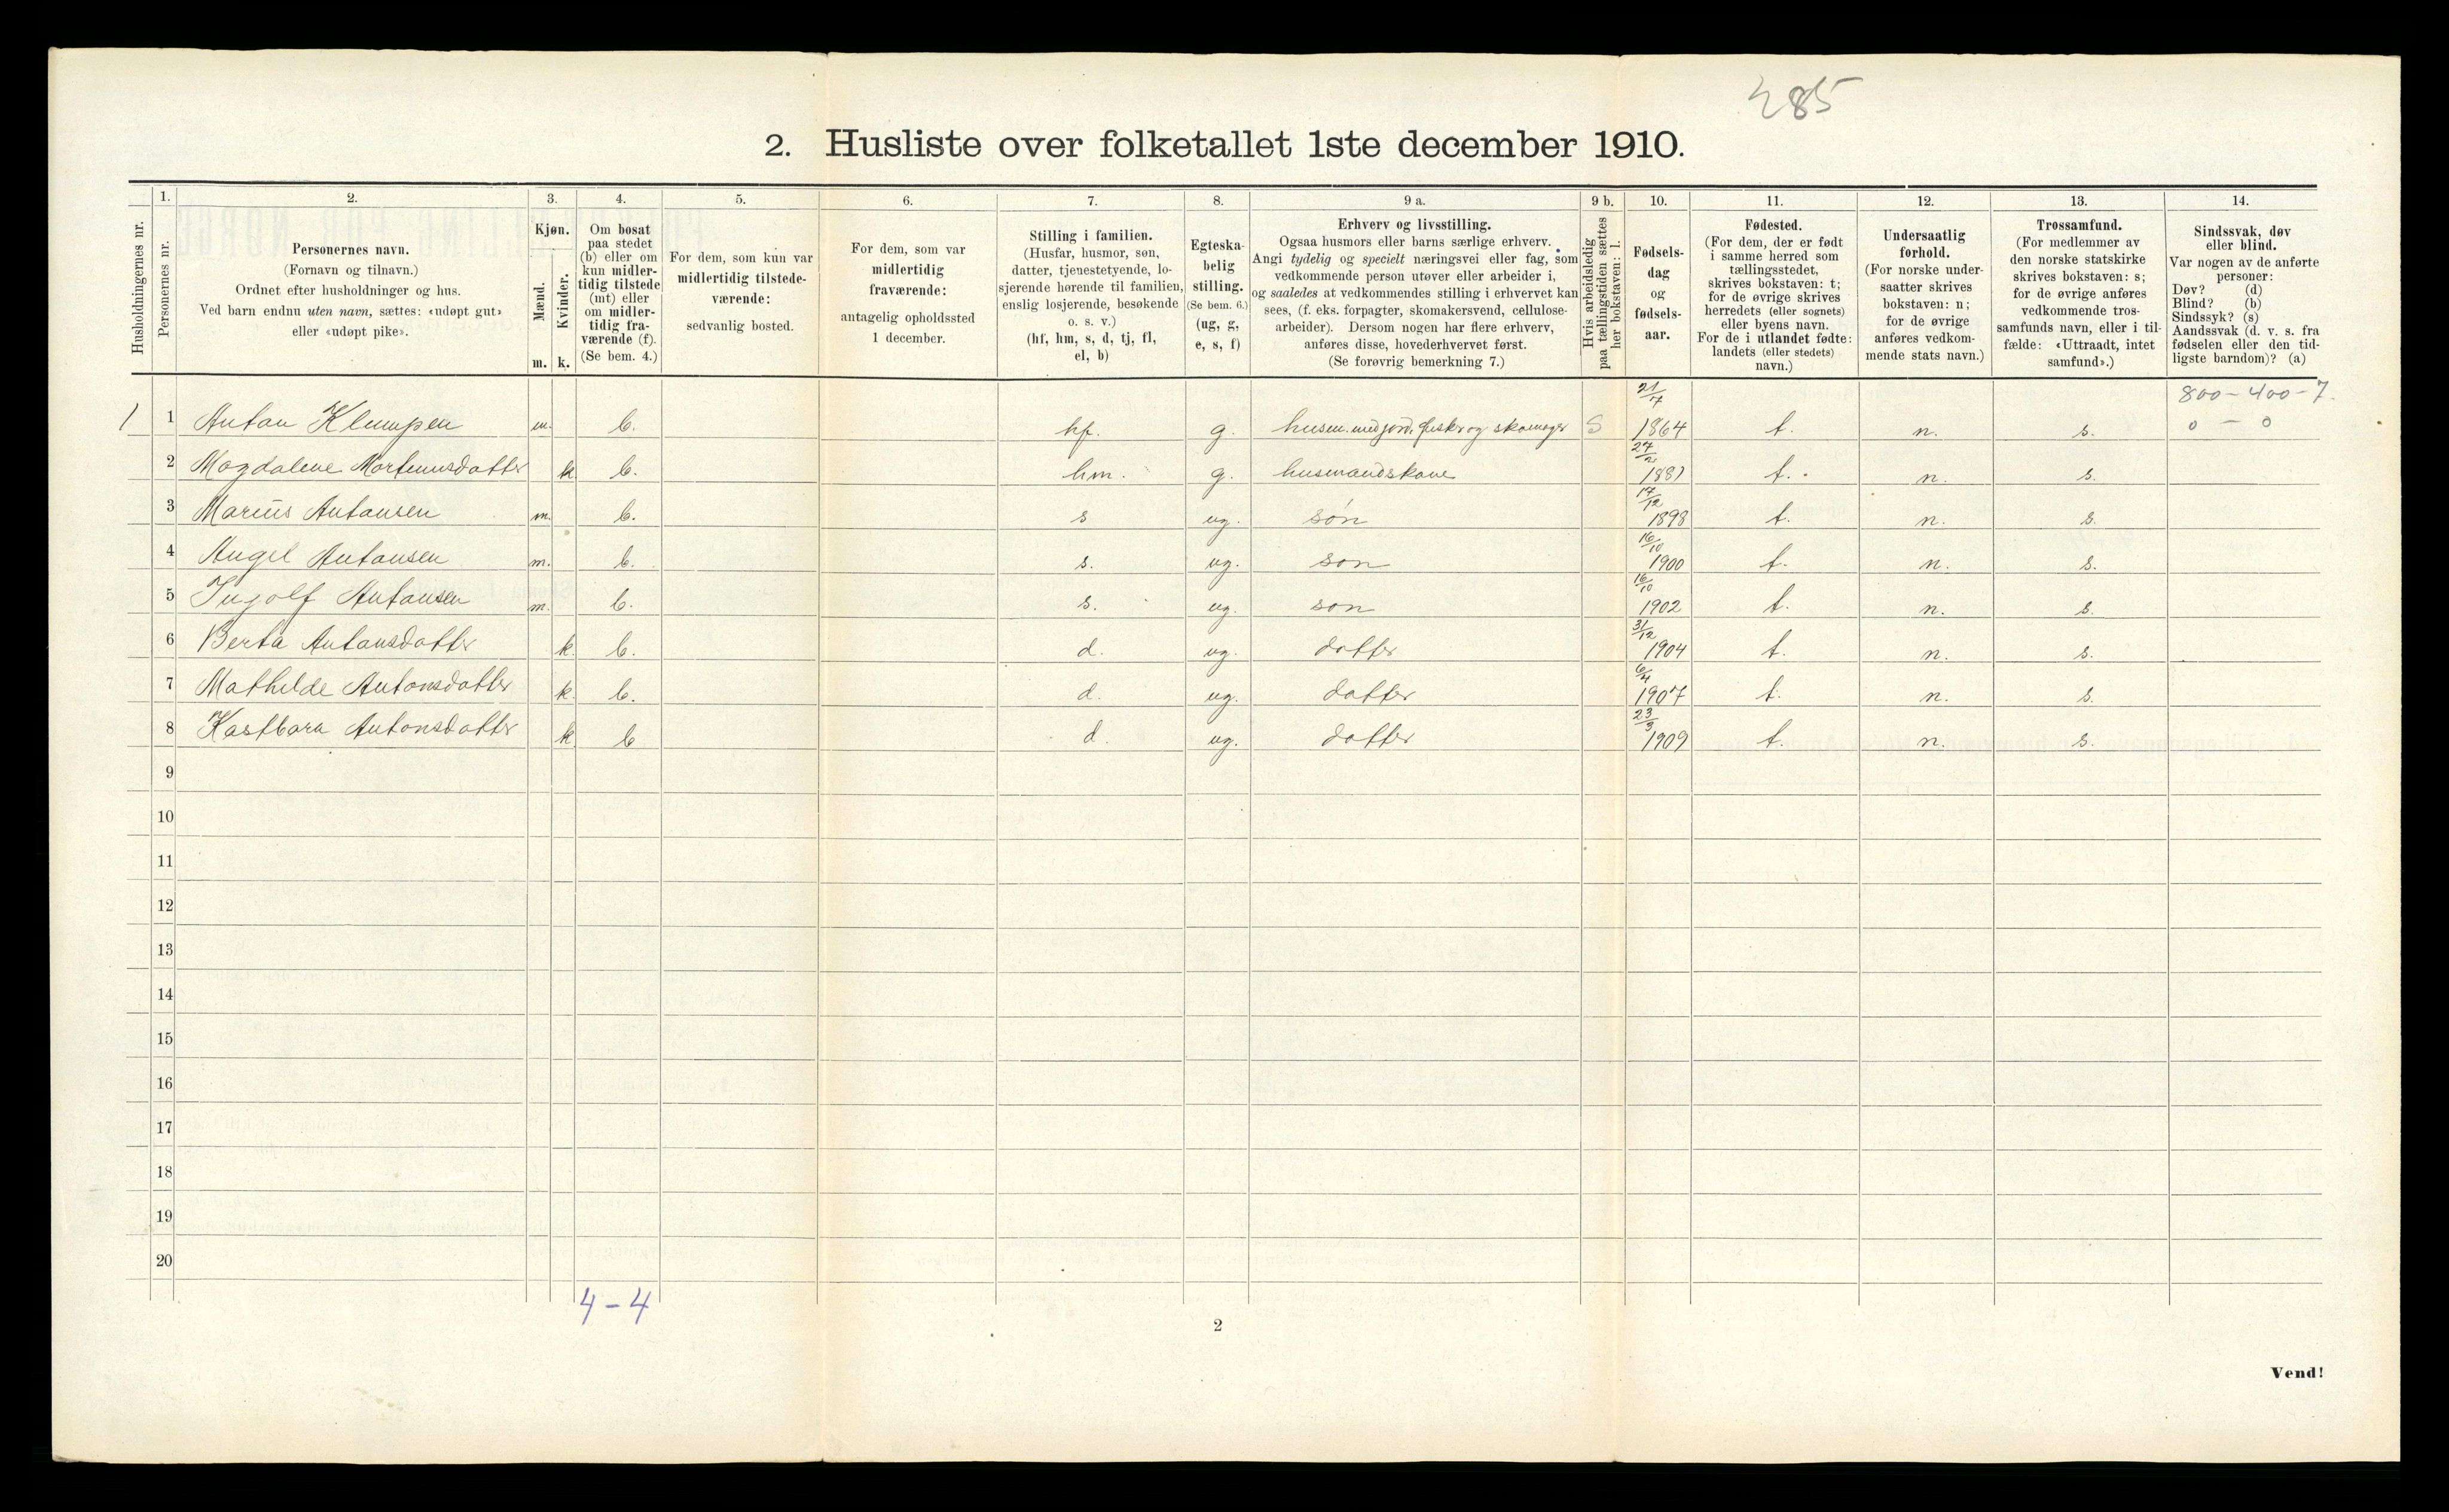 285
2. Husliste over folketallet 1ste december 1910.
Husholdningernes nr.
1.
Personernes nr.
2.
Personernes navn.
(Fornavn og tilnavn.)
Ordnet efter husholdninger og hus.
Ved barn endnu uten navn, sættes: «udøpt gut»
eller «udøpt pike».
3.
Kjøn.
Mænd.
Kvinder.
m. k.
4.
Om bosat
paa stedet
(b) eller om
kun midler-
tidig tilstede
(mt) eller
om midler-
tidig fra-
værende (f).
(Se bem. 4.)
5.
For dem, som kun var
midlertidig tilstede-
værende:
sedvanlig bosted.
6.
For dem, som var
midlertidig
fraværende:
antagelig opholdssted
1 december.
7.
Stilling i familien.
(Husfar, husmor, søn,
datter, tjenestetyende, lo-
sjerende hørende til familien,
enslig losjerende, besøkende
o. s. v.)
(hf, hm, s, d, tj, fl,
el, b)
8.
Egteska-
belig
stilling.
(Se bem. 6.)
(ug, g,
e, s, f)
9 a.
Erhverv og livsstilling.
Ogsaa husmors eller barns særlige erhverv.
Angi tydelig og specielt næringsvei eller fag, som
vedkommende person utøver eller arbeider i,
og saaledes at vedkommendes stilling i erhvervet kan
sees, (f. eks. forpagter, skomakersvend, cellulose-
arbeider). Dersom nogen har flere erhverv,
anføres disse, hovederhvervet først.
(Se forøvrig bemerkning 7.)
9 b.
Hvis arbeidsledig
paa tællingstiden sættes
her bokstaven: l.
10.
Fødsels-
dag
og
fødsels-
aar.
11.
Fødested.
(For dem, der er født
i samme herred som
tællingsstedet,
skrives bokstaven: t;
for de øvrige skrives
herredets (eller sognets)
eller byens navn.
For de i utlandet fødte:
landets (eller stedets)
navn.)
12.
Undersaatlig
forhold.
(For norske under-
saatter skrives
bokstaven: n;
for de øvrige
anføres vedkom-
mende stats navn.)
13.
Trossamfund.
(For medlemmer av
den norske statskirke
skrives bokstaven: s;
for de øvrige anføres
vedkommende tros-
samfunds navn, eller i til-
fælde: «Uttraadt, intet
samfund».)
14.
Sindssvak, døv
eller blind.
Var nogen av de anførte
personer:
Døv? (d)
Blind? (b)
Sindssyk? (s)
Aandssvak (d. v. s. fra
fødselen eller den tid-
ligste barndom)? (a)
800-400-7.
0 - 0
1 1 Anton Klumpen m. b. hf. g. husm. med jord, fisker og skomager S 21/7 1864 t. n. s.
2 Magdalene Mortinusdatter k b. hm. g. husmandskone 27/2 1881 t. n. s.
3 Marius Antonsen m. b. s ug. søn 17/12 1898 t. n. s.
4 Angel Antonsen m. b. s. ug. søn 16/10 1900 t. n. s.
5 Ingolf Antonsen m. b. s. ug. søn 16/10 1902 t. n. s.
6 Berta Antonsdatter k. b. d. ug. datter 31/12 1904 t. n. s.
7 Mathilde Antonsdatter k. b. d. ug. datter 6/4 1907 t. n. s.
8 Kastbara Antonsdatter k b d. ug. datter 23/3 1909 t. n. s.
9
10
11
12
13
14
15
16
17
18
19
20
4-4
2
Vend!